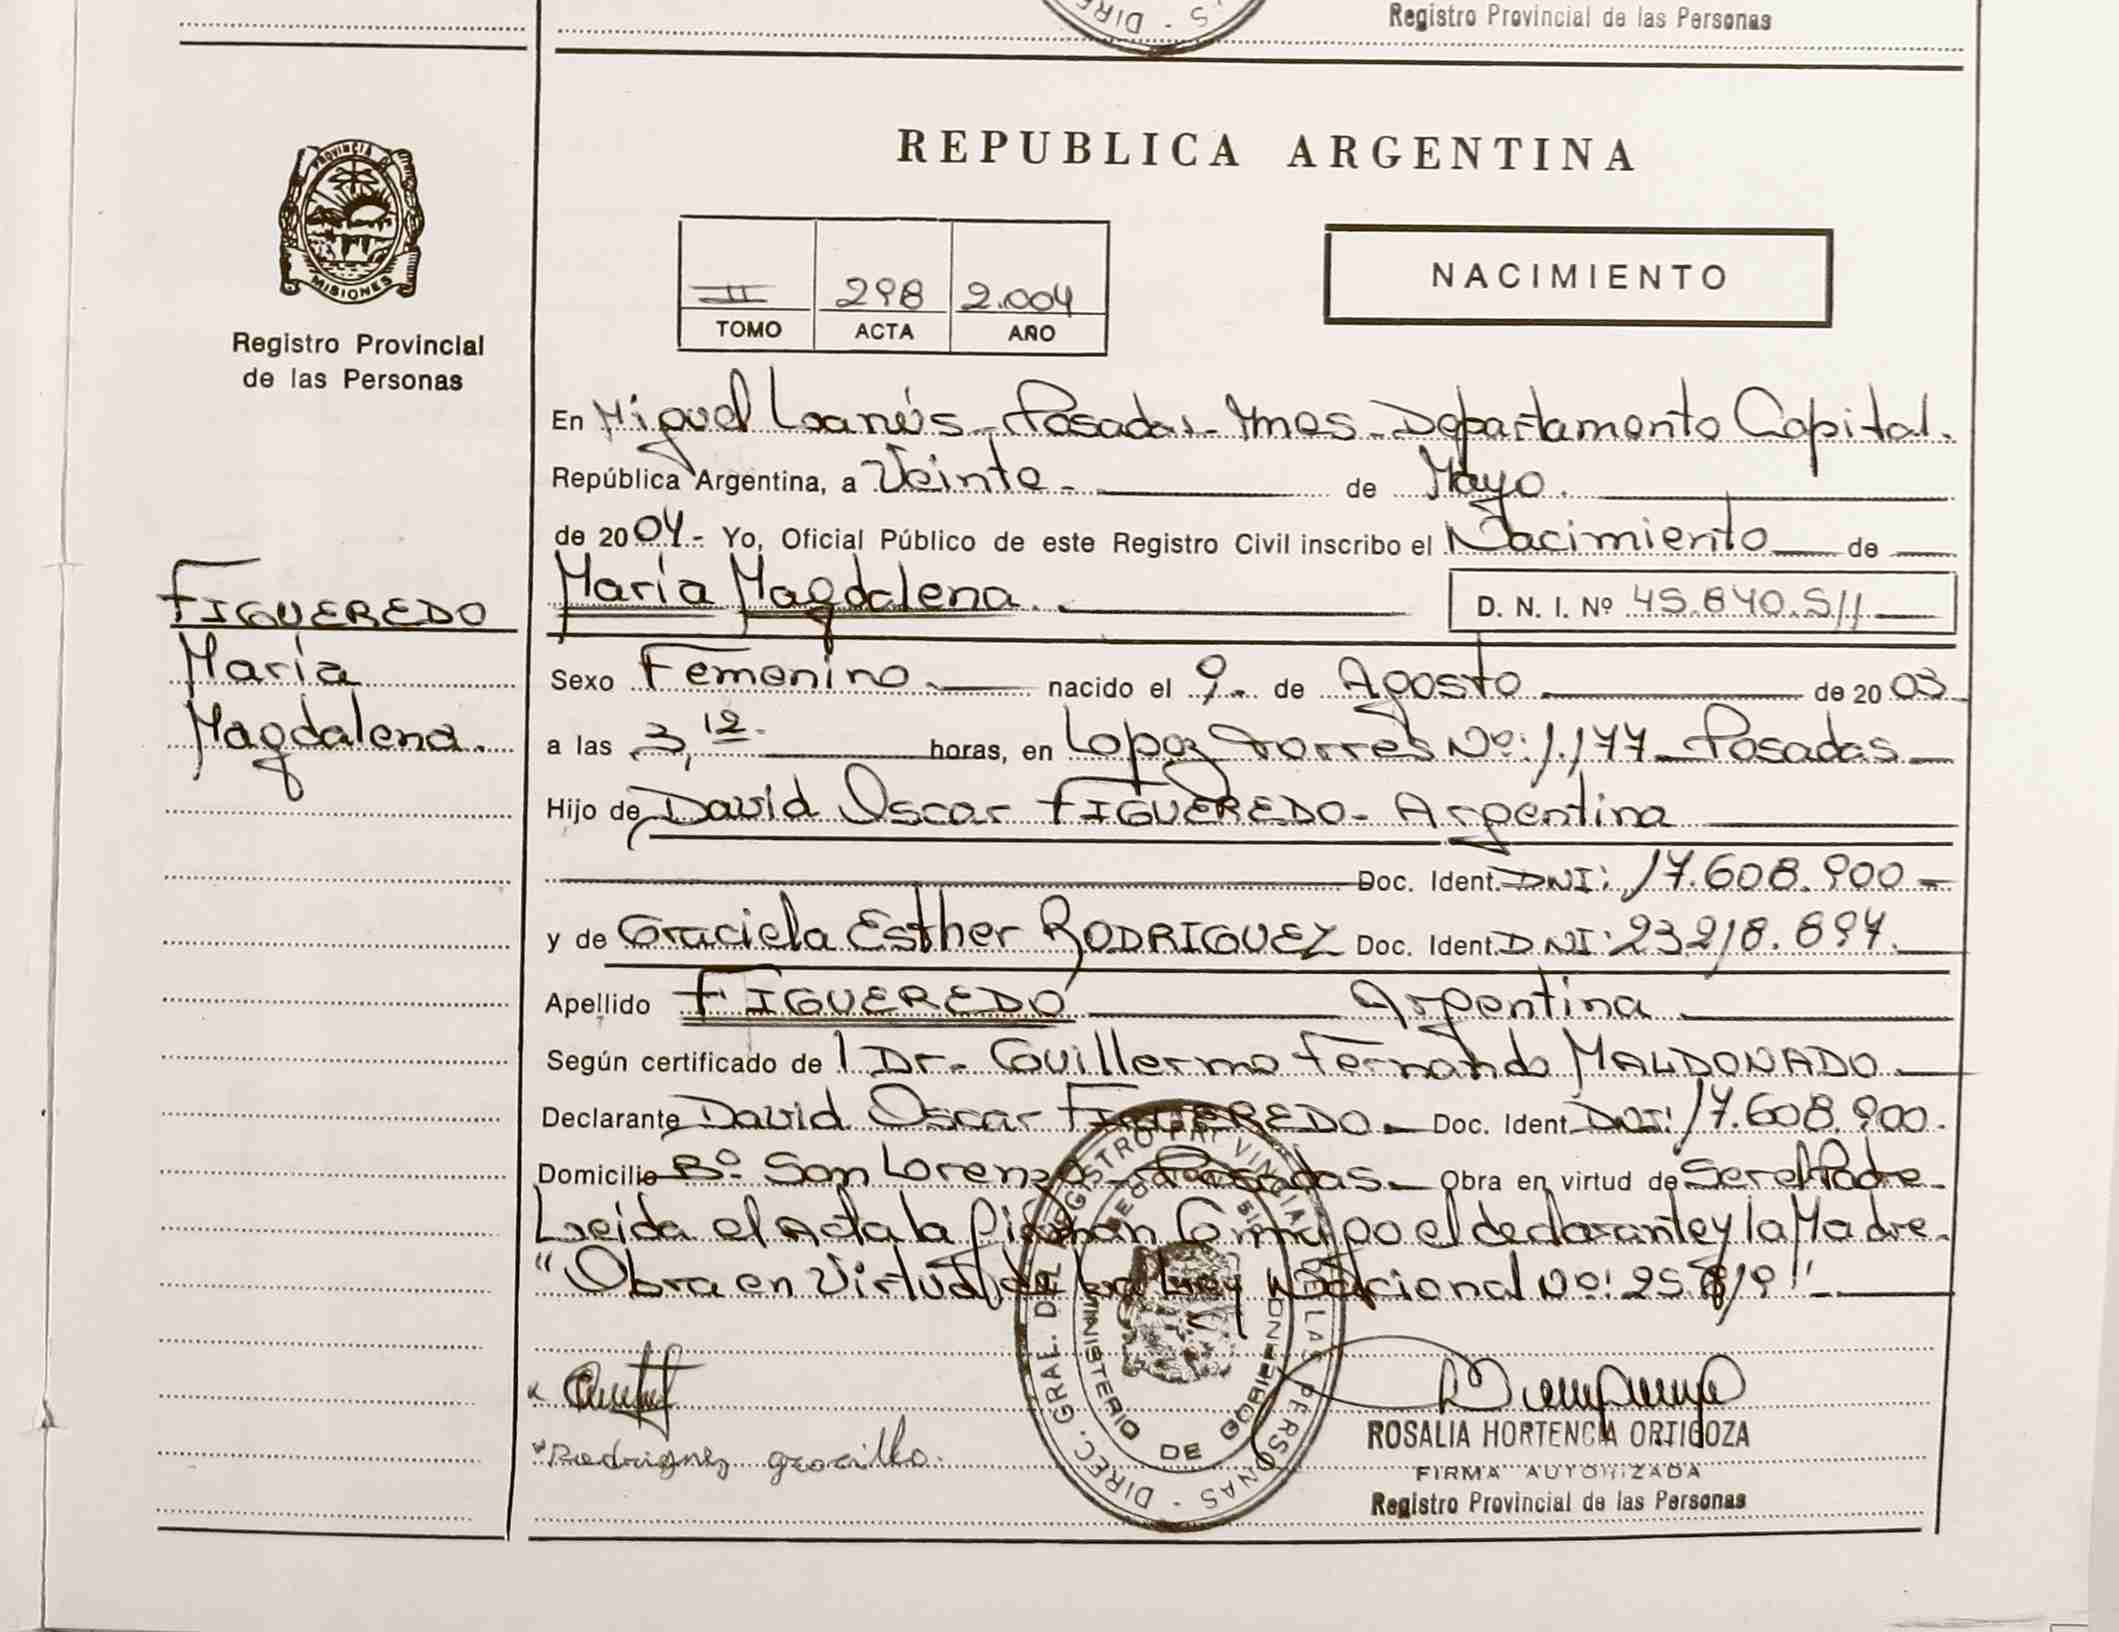 Registro Provincial de las Personas
PROVINCIA DE
MISIONES
Registro Provincial
de las Personas
REPUBLICA ARGENTINA
II 298 2.004
TOMO ACTA AÑO
NACIMIENTO
En Miguel Lanús - Posadas - Mnes - Departamento Capital.
República Argentina, a Veinte - de Mayo.
de 2004.- Yo, Oficial Público de este Registro Civil inscribo el Nacimiento de
María Magdalena. D. N. I. Nº 45.840.511
FIGUEREDO
María
Magdalena.
Sexo Femenino nacido el 9 de Agosto de 2003
a las 3,12 horas, en Lopez Torres Nº: 1.177 - Posadas
Hijo de David Oscar FIGUEREDO - Argentina
Doc. Ident. DNI: 17.608.900
y de Graciela Esther RODRIGUEZ Doc. Ident. D.NI: 23.218.694.
Apellido FIGUEREDO Argentina
Según certificado de l Dr. Guillermo Fernando MALDONADO
Declarante David Oscar FIGUEREDO Doc. Ident. DNI: 17.608.900.
Domicilio Bº San Lorenzo - Posadas. Obra en virtud de Ser el Padre
Leida el Acta la Firman Conmigo el declarante y la Madre.
"Obra en Virtud de la Ley Nacional Nº: 25.819"
Rodriguez Graciela
DIREC. GRAL. DEL REGISTRO PROVINCIAL DE LAS PERSONAS
MINISTERIO DE GOBIERNO
ROSALIA HORTENCIA ORTIGOZA
FIRMA AUTORIZADA
Registro Provincial de las Personas